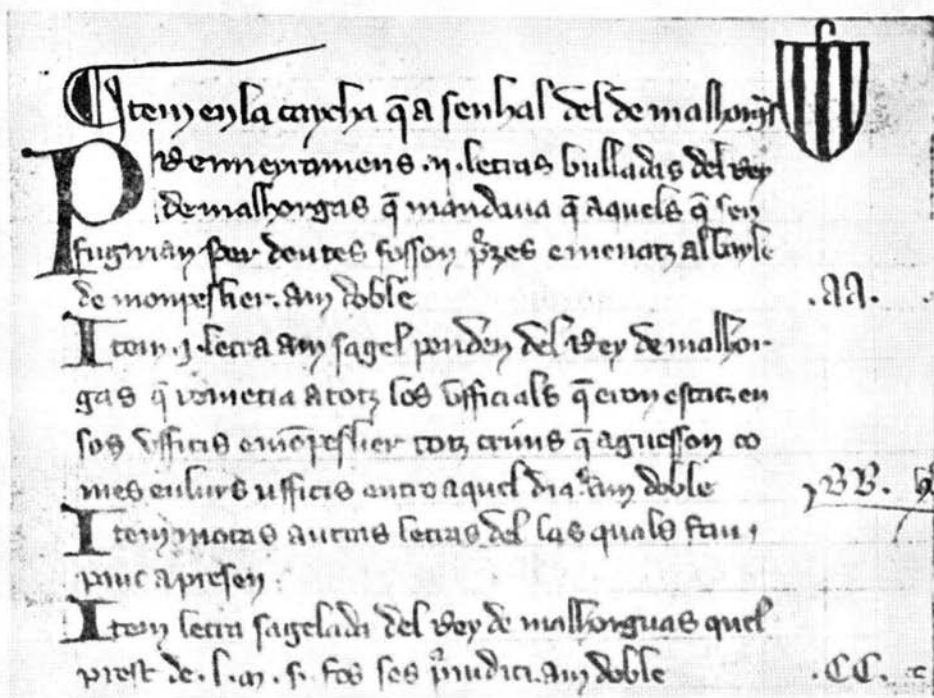 Item en la caycha q̄ a senhal del de malhorg̃s
Premieyramens .ii. letras bulladas del rey
de malhorgas q̄ mandava q̄ aquels q̄ sen
fugirian per deutes fosson p̃zes e menatz al bayle
de monpeslier. am doble .AA.
Item .j. letra am sagel penden del Rey de malhor-
gas q̃ remetia a totz los ufficials q̄ eron estatz en
sos ufficis e mōpeslier totz crims q̄ aguesson co
mes en lurs ufficis entro aquel dia. am doble .BB.
Item motas autras letras del las quals fan j
pauc a presen.
Item letra sagelada del Rey de malhorguas quel
prest de .l. m. s. fos ses p̃iudici. am doble .CC.